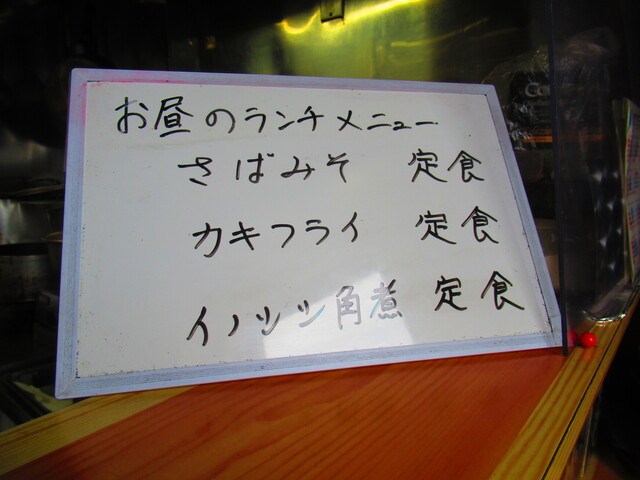 お昼のランチメニュー
さばみそ 定食
カキフライ 定食
イノシシ角煮 定食